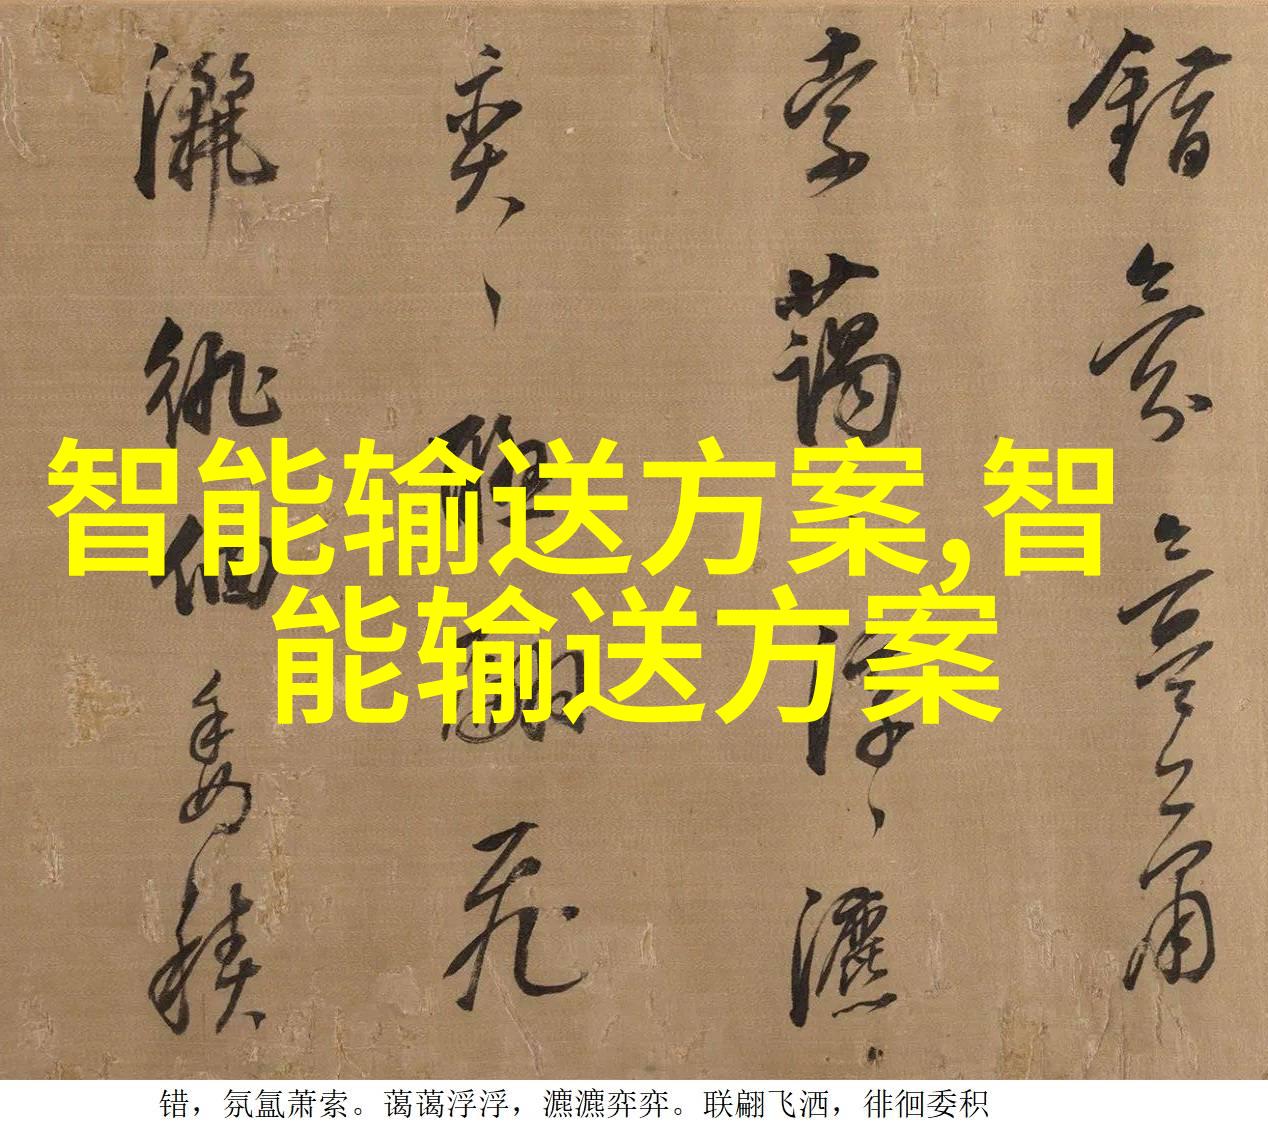 错氛氲萧
索蔼浮浮瀌瀌
弈弈联翩飞
洒徘徊委积
智能输送方案,智
能输送方案
错，氛氲萧索。蔼蔼浮浮，瀌瀌弈弈。联翩飞洒，徘徊委积